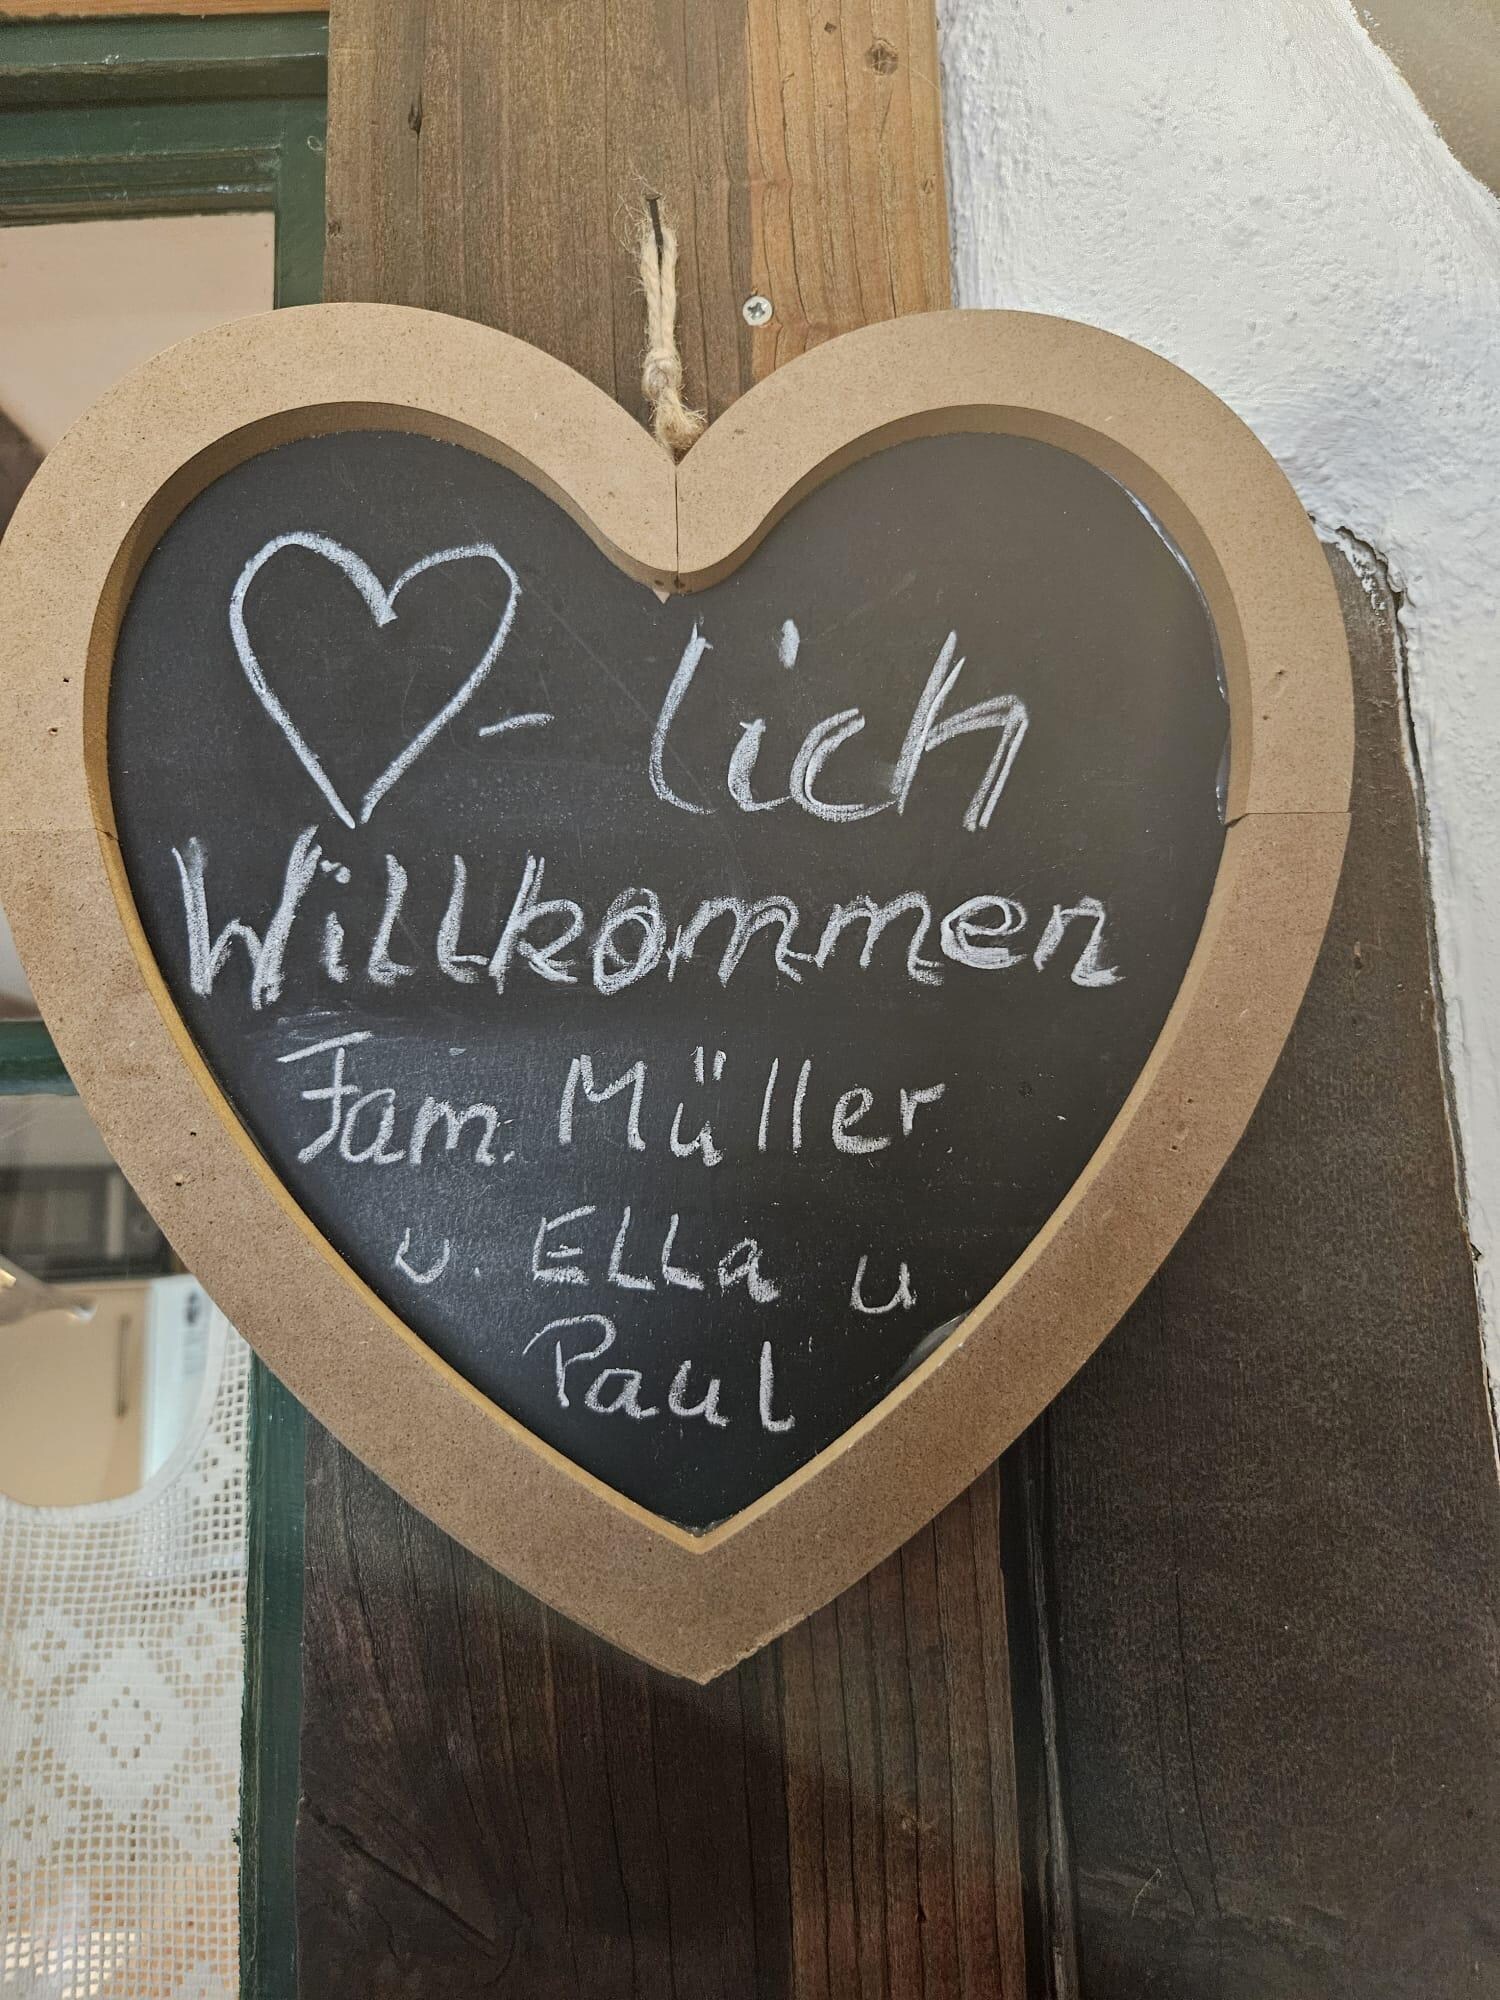 ♡-lich
Willkommen
Fam. Müller
u. Ella u
Paul